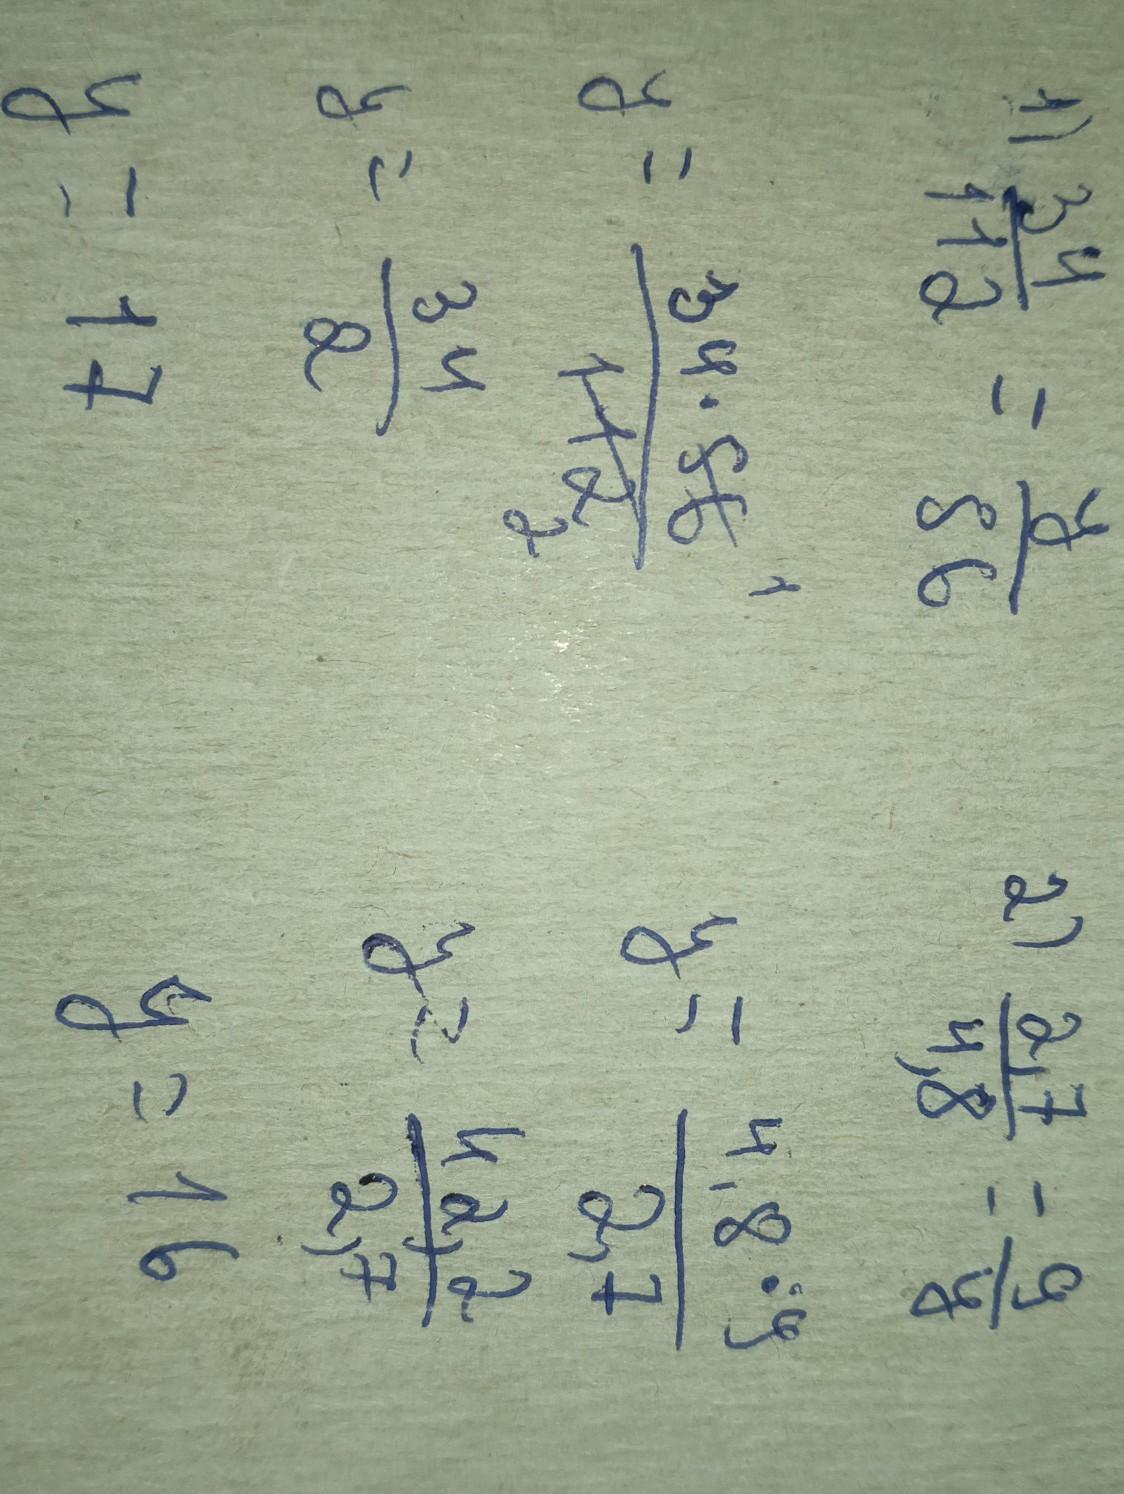 1) 34/112 = y/56
y = 34·56 1/112 2
y = 34/2
y = 17
2) 2,7/4,8 = 9/y
y = 4,8·9/2,7
y = 42,2/2,7
y = 16